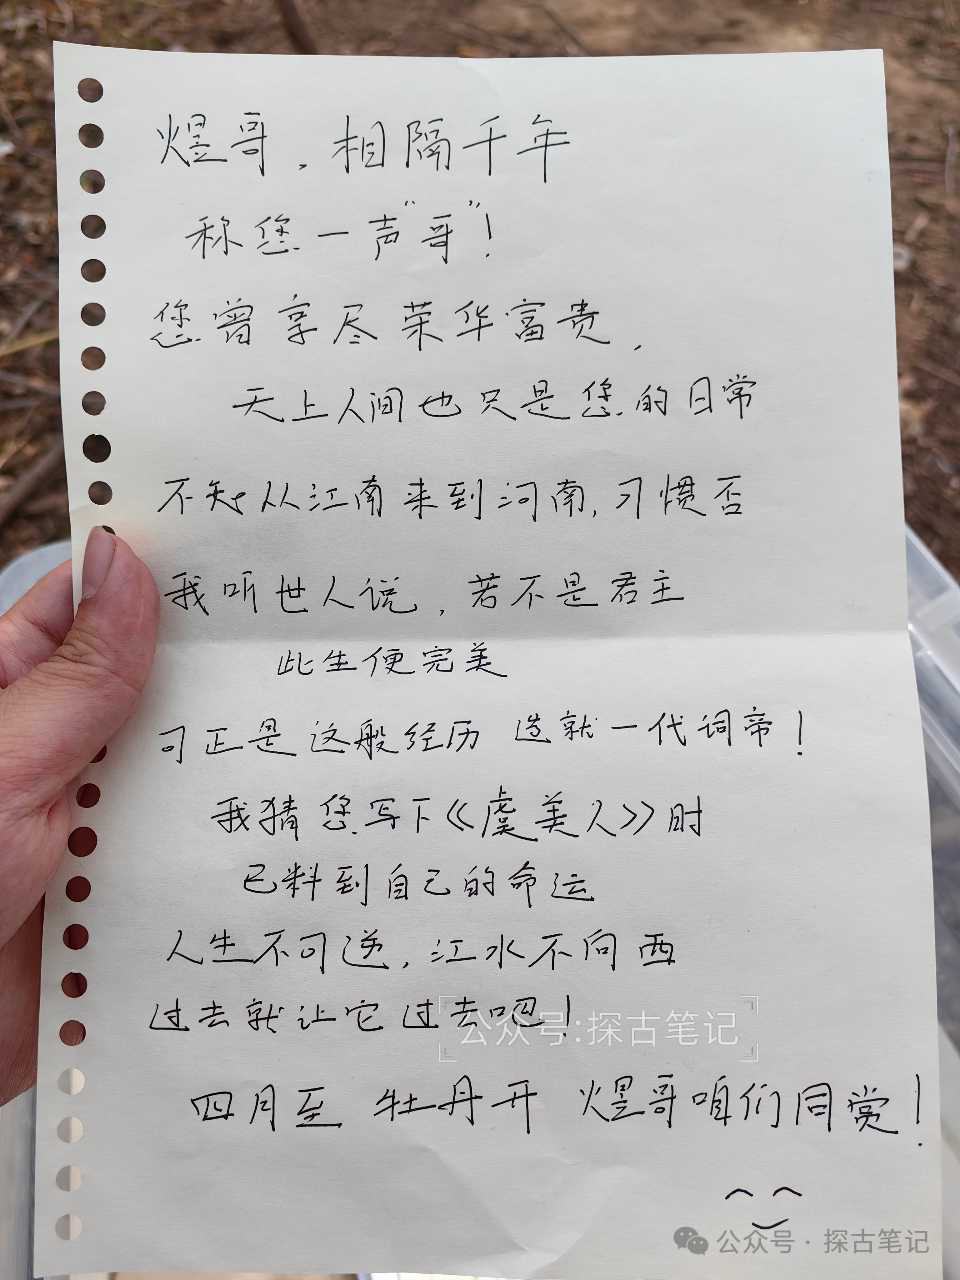 煜哥，相隔千年
称您一声“哥”！
您曾享尽荣华富贵，
天上人间也只是您的日常
不知从江南来到河南，习惯否
我听世人说，若不是君主
此生便完美
可正是这般经历 造就一代词帝！
我猜您写下《虞美人》时
已料到自己的命运
人生不可逆，江水不向西
过去就让它过去吧！
公众号:探古笔记
四月至 牡丹开 煜哥咱们同赏！
公众号·探古笔记